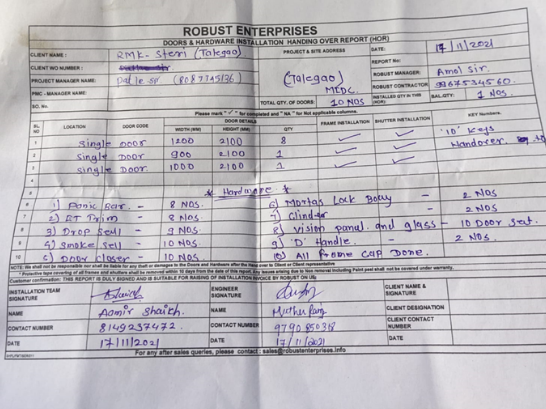 ROBUST ENTERPRISES
DOORS & HARDWARE INSTALLATION HANDING OVER REPORT (HOR)
CLIENT NAME : RMK- Steri (Talegao) PROJECT & SITE ADDRESS DATE: 17/11/2021
CLIENT WO NUMBER : REPORT No:
PROJECT MANAGER NAME: (Talegao) ROBUST MANAGER: Amol Sir.
PMC - MANAGER NAME: MIDC. ROBUST CONTRACTOR: 9967534560.
SO. No. TOTAL QTY. OF DOORS: 10 NOS INSTALLED QTY IN THIS (HOR) BAL.QTY: 1 NOS
Please mark "✓" for completed and "NA" for Not applicable columns.
SL NO LOCATION DOOR CODE DOOR DETAILS FRAME INSTALLATION SHUTTER INSTALLATION KEY Numbers.
WIDTH (MM) HEIGHT (MM) QTY
1 Single Door 1200 2100 8 ✓ ✓ "10" Keys
2 Single Door 900 2100 1 ✓ ✓ Handover
3 Single Door 1000 2100 1 ✓ ✓
* Hardware *
1) Panic Bar. - 8 NOS. 6) Mortas Lock Body - 2 NOS
2) ET Prim - 8 NOS. - 2 NOS
3) Drop Sell - 9 NOS. 8) Vision panal. and glass - 10 Door Set.
4) Smoke Sell - 10 NOS. 9) 'D' Handle. - 2 NOS.
5) Door Closer - 10 NOS 10) All Frame Cap Done.
NOTE: We shall not be responsible nor liable for any theft or damages to the Doors and Hardware after the hand over to Client or Client representative
* Protective tape covering of all frames and shutters shall be removed within 10 days from the date of this report. Any issues arising due to non removal including Paint peel shall not be covered under warranty.
Customer confirmation: THIS REPORT IS DULY SIGNED AND IS SUITABLE FOR RAISING OF INSTALLATION INVOICE BY ROBUST ON US.
INSTALLATION TEAM SIGNATURE ENGINEER SIGNATURE CLIENT NAME & SIGNATURE
NAME Aamir Shaikh. NAME CLIENT DESIGNATION
CONTACT NUMBER 8149237472. CONTACT NUMBER CLIENT CONTACT NUMBER
DATE 17/11/2021 DATE 17/11/2021 DATE
For any after sales queries, please contact : sales@robustenterprises.info